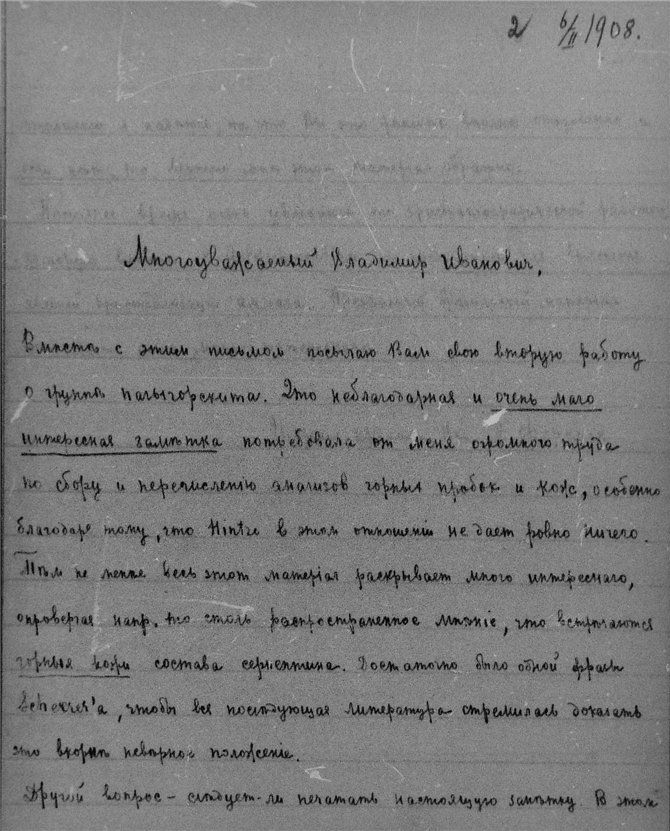 2 6/II 1908.
Многоуважаемый Владимир Иванович,
Вмѣстѣ с этим письмом посылаю Вам свою вторую работу
о группѣ палыгорскита. Это неблагодарная и очень мало
интересная замѣтка потребовала от меня огромного труда
по сбору и перечисленію анализов горных пробок и кож, особенно
благодаря тому, что Hintze в этом отношеніи не дает ровно ничего.
Тѣм не менѣе весь этот матеріал раскрывает много интереснаго,
опровергая напр. то столь распространенное мнѣніе, что встрѣчаются
горныя кожи состава серпентина. Достаточно было одной фразы
Scheerer'а, чтобы вся послѣдующая литература стремилась доказать
это вкорнѣ невѣрное положеніе.
Другой вопрос – слѣдует-ли печатать настоящую замѣтку. В этом